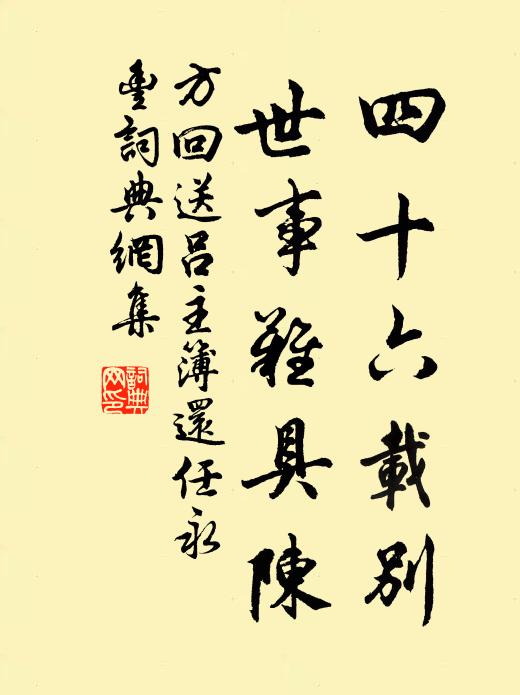 四十六載別
世事難具陳
方回送呂主簿還任永
豐詞典網集
詞典
网印